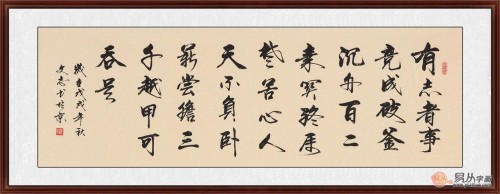 有志者事
竟成破釜
沉舟百二
秦関終属
楚苦心人
天不負卧
薪嘗膽三
千越甲可
吞吴
歲在戊戌年秋
书於京
易从字画